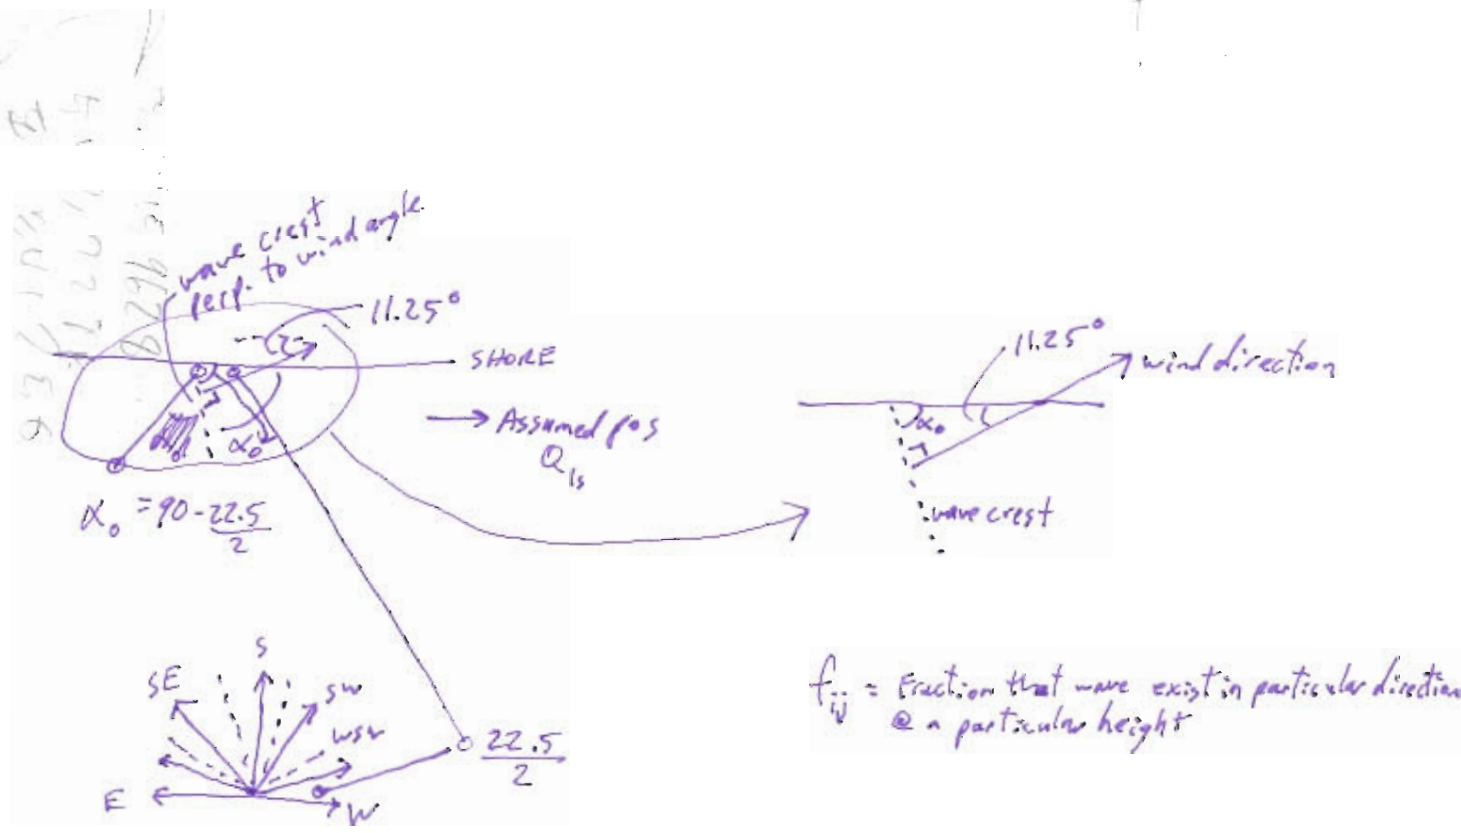 wave crest
perp. to wind angle
11.25°
SHORE
→ Assumed pos
Q_ls
α₀
α₀ = 90 - 22.5/2
11.25°
wind direction
α₀
wave crest
S
SE
SW
WSW
E
W
22.5/2
f_ij = Fraction that wave exist in particular direction
@ a particular height